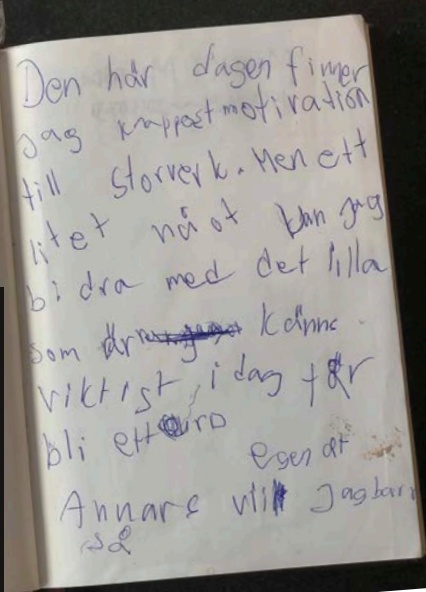 Den här dagen finner
jag knappast motivation
till storverk. Men ett
litet nåot kan jag
bidra med det lilla
som är känns
viktigt, i dag får
bli ett
Annars vill Jag bara
så